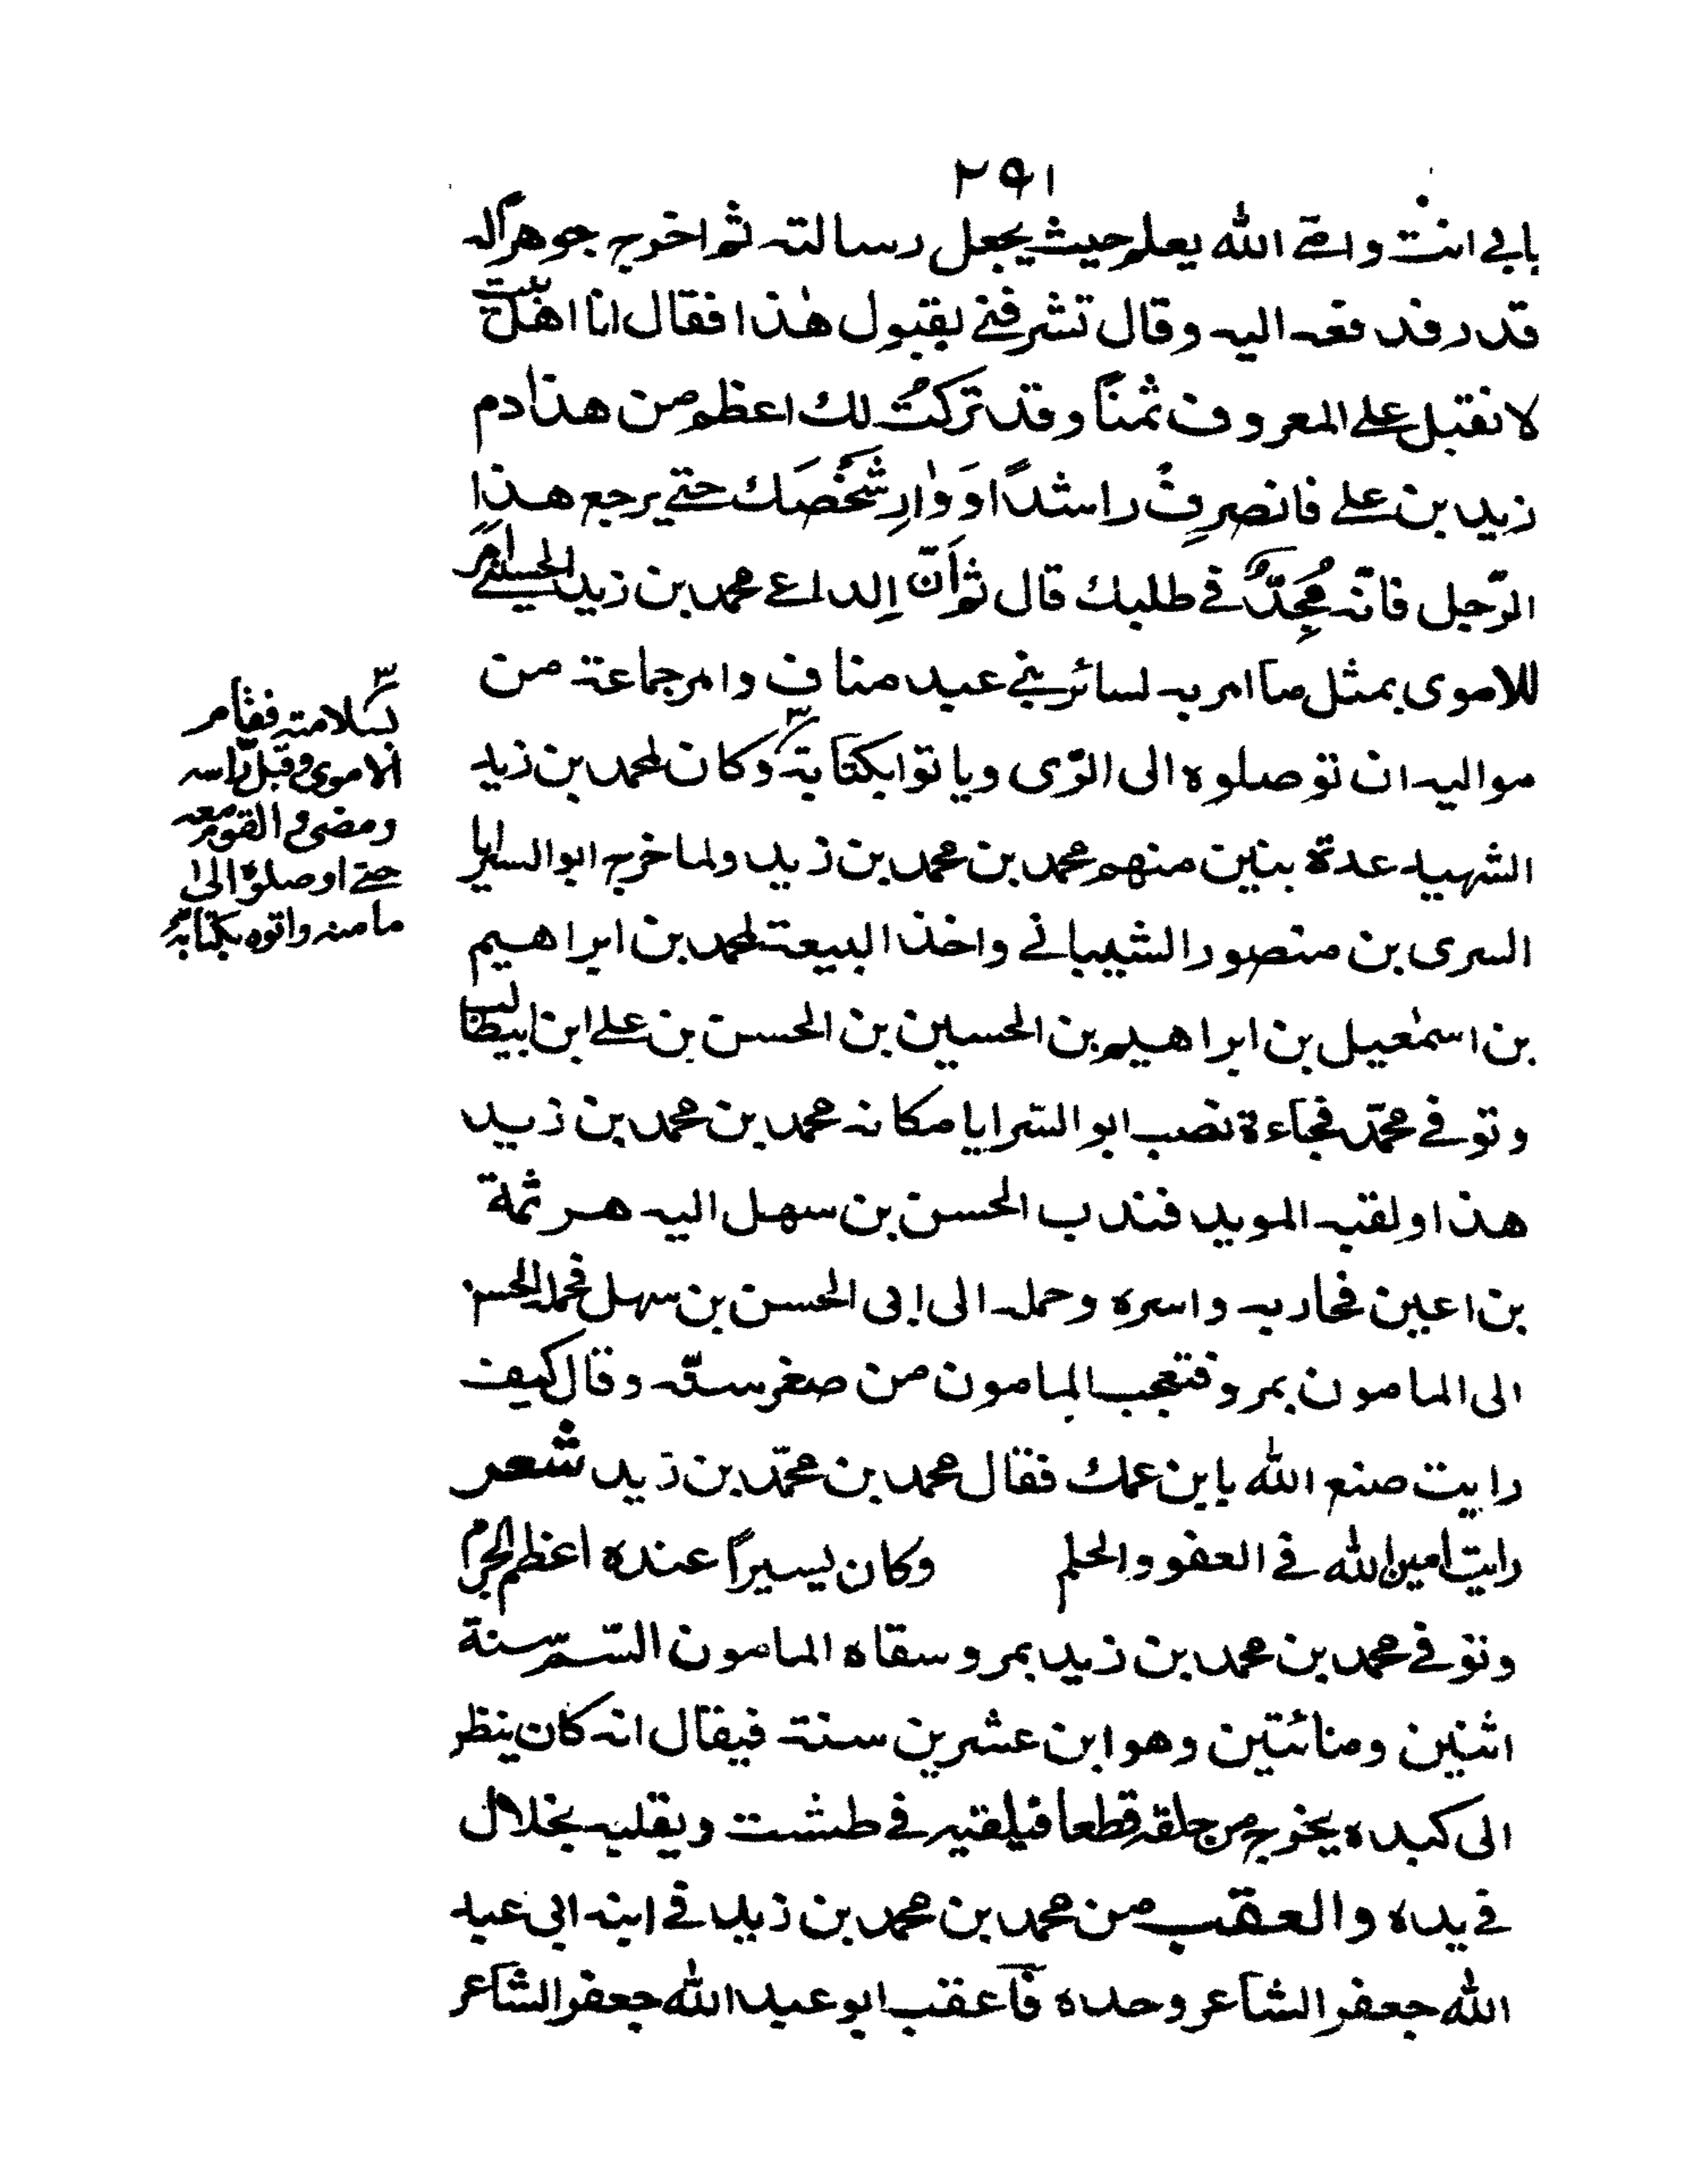 ٢٩١
بابي انت وامي الله يعلم حيث يجعل رسالته ثم اخرج جوهراً له
قدر فدفعه اليه وقال تشرفني بقبول هٰذا فقال انا اهل بيت
لا نقبل على المعروف ثمناً وقد تركتُ لك اعظم من هذا دم
زيد بن علي فانصرِفْ راشداً وَوٰارِ شَخْصَك حتى يرجع هذا
الرّجل فانّه مُجِدٌّ في طلبك قال ثم اَنّ الداعي محمد بن زيد الحسني اَمَرَ
للاموي بمثل ما امر به لسائر بني عبد مناف وامر جماعة من
مواليه ان توصلوه الى الرّى وياتوا بكتابه وكان لمحمد بن زيد
الشهيد عدة بنين منهم محمد بن محمد بن زيد ولما خرج ابو السرايا
السرى بن منصور الشيباني واخذ البيعة لمحمد بن ابراهيم
بن اسمٰعيل بن ابراهيم بن الحسين بن الحسن بن علي ابن ابيطالب
وتوفي محمّد فجاءة نصب ابو السّرايا مكانه محمد بن محمد بن زيد
هذا ولقبه المويد فندب الحسن بن سهل اليه هرثمة
بن اعين فحاربه واسره وحمله الى ابى الحسن بن سهل فحمله الحسن
الى المامون بمرو فتعجب المامون من صغر سنّه وقال كيف
رايت صنع الله بابن عمك فقال محمد بن محمّد بن زيد شعر
رايت امين الله في العفو والحلم وكان يسيراً عنده اعظم الجرم
وتوفي محمد بن محمد بن زيد بمرو سقاه المامون السّمّ سنة
اثنين ومائتين وهو ابن عشرين سنة فيقال انه كان ينظر
الى كبده يخرج من حلقه قطعا فيلقيه في طشت ويقلبه بخلال
في يده والعقب من محمد بن محمد بن زيد في ابنه ابى عبد
الله جعفر الشاعر وحده فاعقب ابو عبد الله جعفر الشاعر
بسلامته فقام
الاموى وقبل راسه
ومضى والقوم معه
حتى اوصلوه الى
مامنه واتوه بكتابه